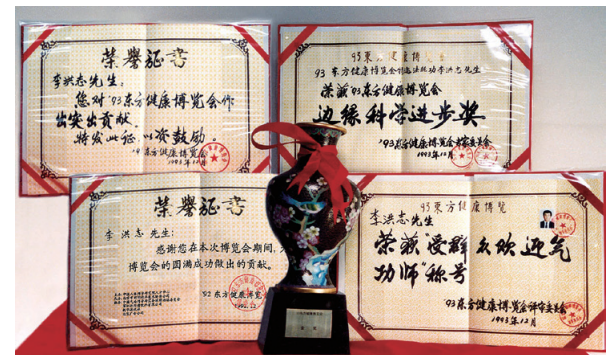 荣誉证书
李洪志先生：
您对'93东方健康博览会作
出突出贡献。
特发此证，以资鼓励。
东方健康博览会
1993年12月
93東方健康博览会
93 东方健康博览会
李洪志先生
荣获'93东方健康博览会
边缘科学进步奖
'93东方健康博览会专家委员会
1993年12月
荣誉证书
李洪志先生：
感谢您在本次博览会期间，
博览会的圆满成功做出的贡献。
东方健康博览
93東方健康博览
李洪志先生
荣获"受群众欢迎气
功师"称号
'93东方健康博览会评审委员会
1993年12月